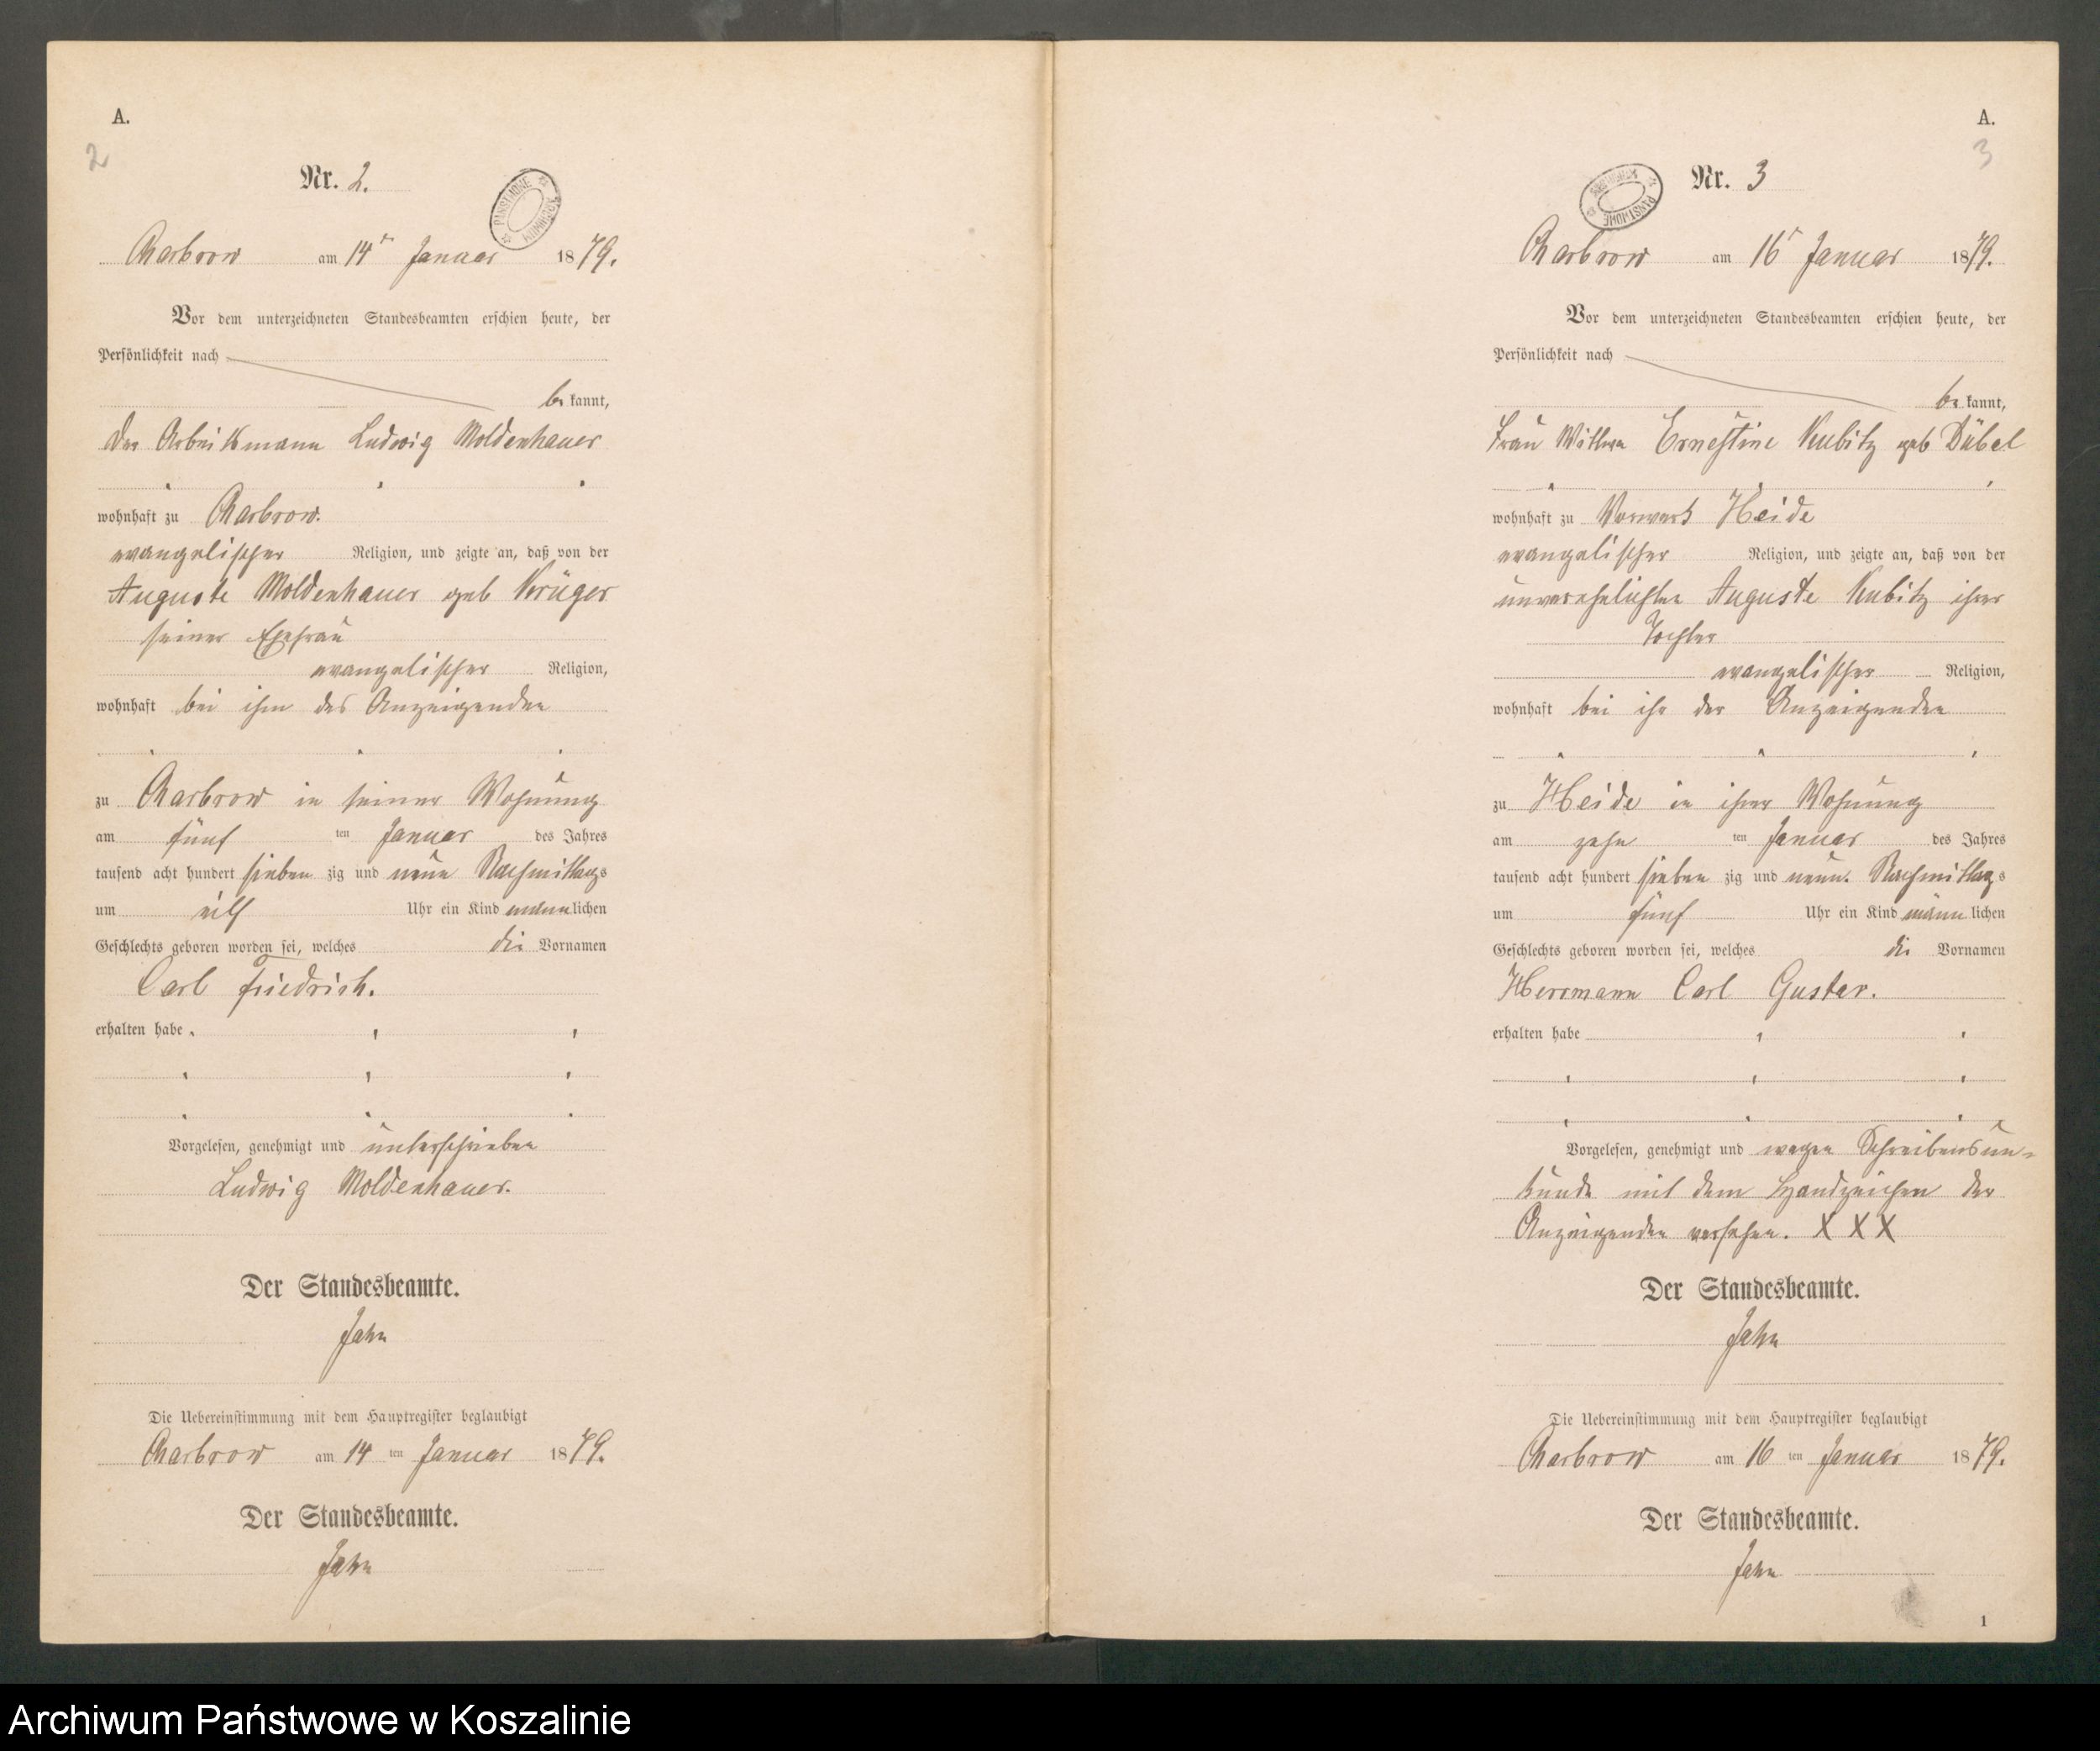 A.
2
Nr. 2.
Charbrow am 14ᵗ Januar 1879.
Vor dem unterzeichneten Standesbeamten erschien heute, der
Persönlichkeit nach
be kannt,
der Arbeitsmann Ludwig Moldenhauer
wohnhaft zu Charbrow.
evangelischer Religion, und zeigte an, daß von der
Auguste Moldenhauer geb Krüger
seiner Ehefrau
evangelischer Religion,
wohnhaft bei ihm des Anzeigenden
zu Charbrow in seiner Wohnung
am fünf ten Januar des Jahres
tausend acht hundert sieben zig und neun Nachmittags
um eilf Uhr ein Kind männlichen
Geschlechts geboren worden sei, welches die Vornamen
Carl Friedrich.
erhalten habe
Vorgelesen, genehmigt und unterschrieben
Ludwig Moldenhauer.
Der Standesbeamte.
Jahn
Die Uebereinstimmung mit dem Hauptregister beglaubigt
Charbrow am 14 ten Januar 1879.
Der Standesbeamte.
Jahn
A.
3
Nr. 3
Charbrow am 16ᵗ Januar 1879.
Vor dem unterzeichneten Standesbeamten erschien heute, der
Persönlichkeit nach
be kannt,
Frau Wittwe Ernestine Kubitz geb Dübel
wohnhaft zu Vorwerk Heide
evangelischer Religion, und zeigte an, daß von der
unverehelichten Auguste Kubitz ihrer
Tochter
evangelischer Religion,
wohnhaft bei ihr der Anzeigenden
zu Heide in ihrer Wohnung
am zehn ten Januar des Jahres
tausend acht hundert sieben zig und neun. Nachmittags
um fünf Uhr ein Kind männlichen
Geschlechts geboren worden sei, welches die Vornamen
Herrmann Carl Gustav.
erhalten habe
Vorgelesen, genehmigt und wegen Schreibensun-
kunde mit dem Handzeichen der
Anzeigenden versehen. X X X
Der Standesbeamte.
Jahn
Die Uebereinstimmung mit dem Hauptregister beglaubigt
Charbrow am 16 ten Januar 1879.
Der Standesbeamte.
Jahn
1
Archiwum Państwowe w Koszalinie